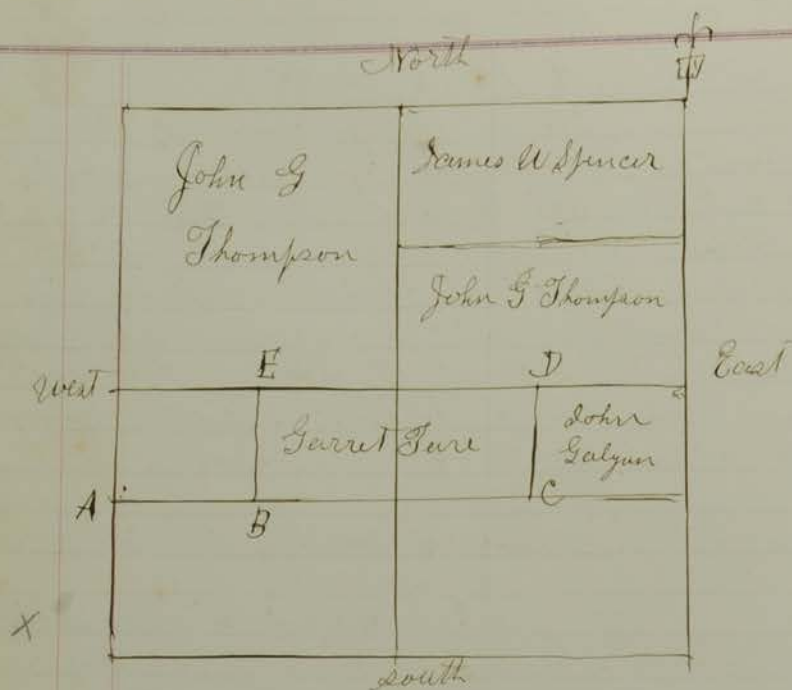 North
John G
Thompson
James W Spencer
John G Thompson
West
E
D
East
Garret
John
Galyun
A
B
C
X
South